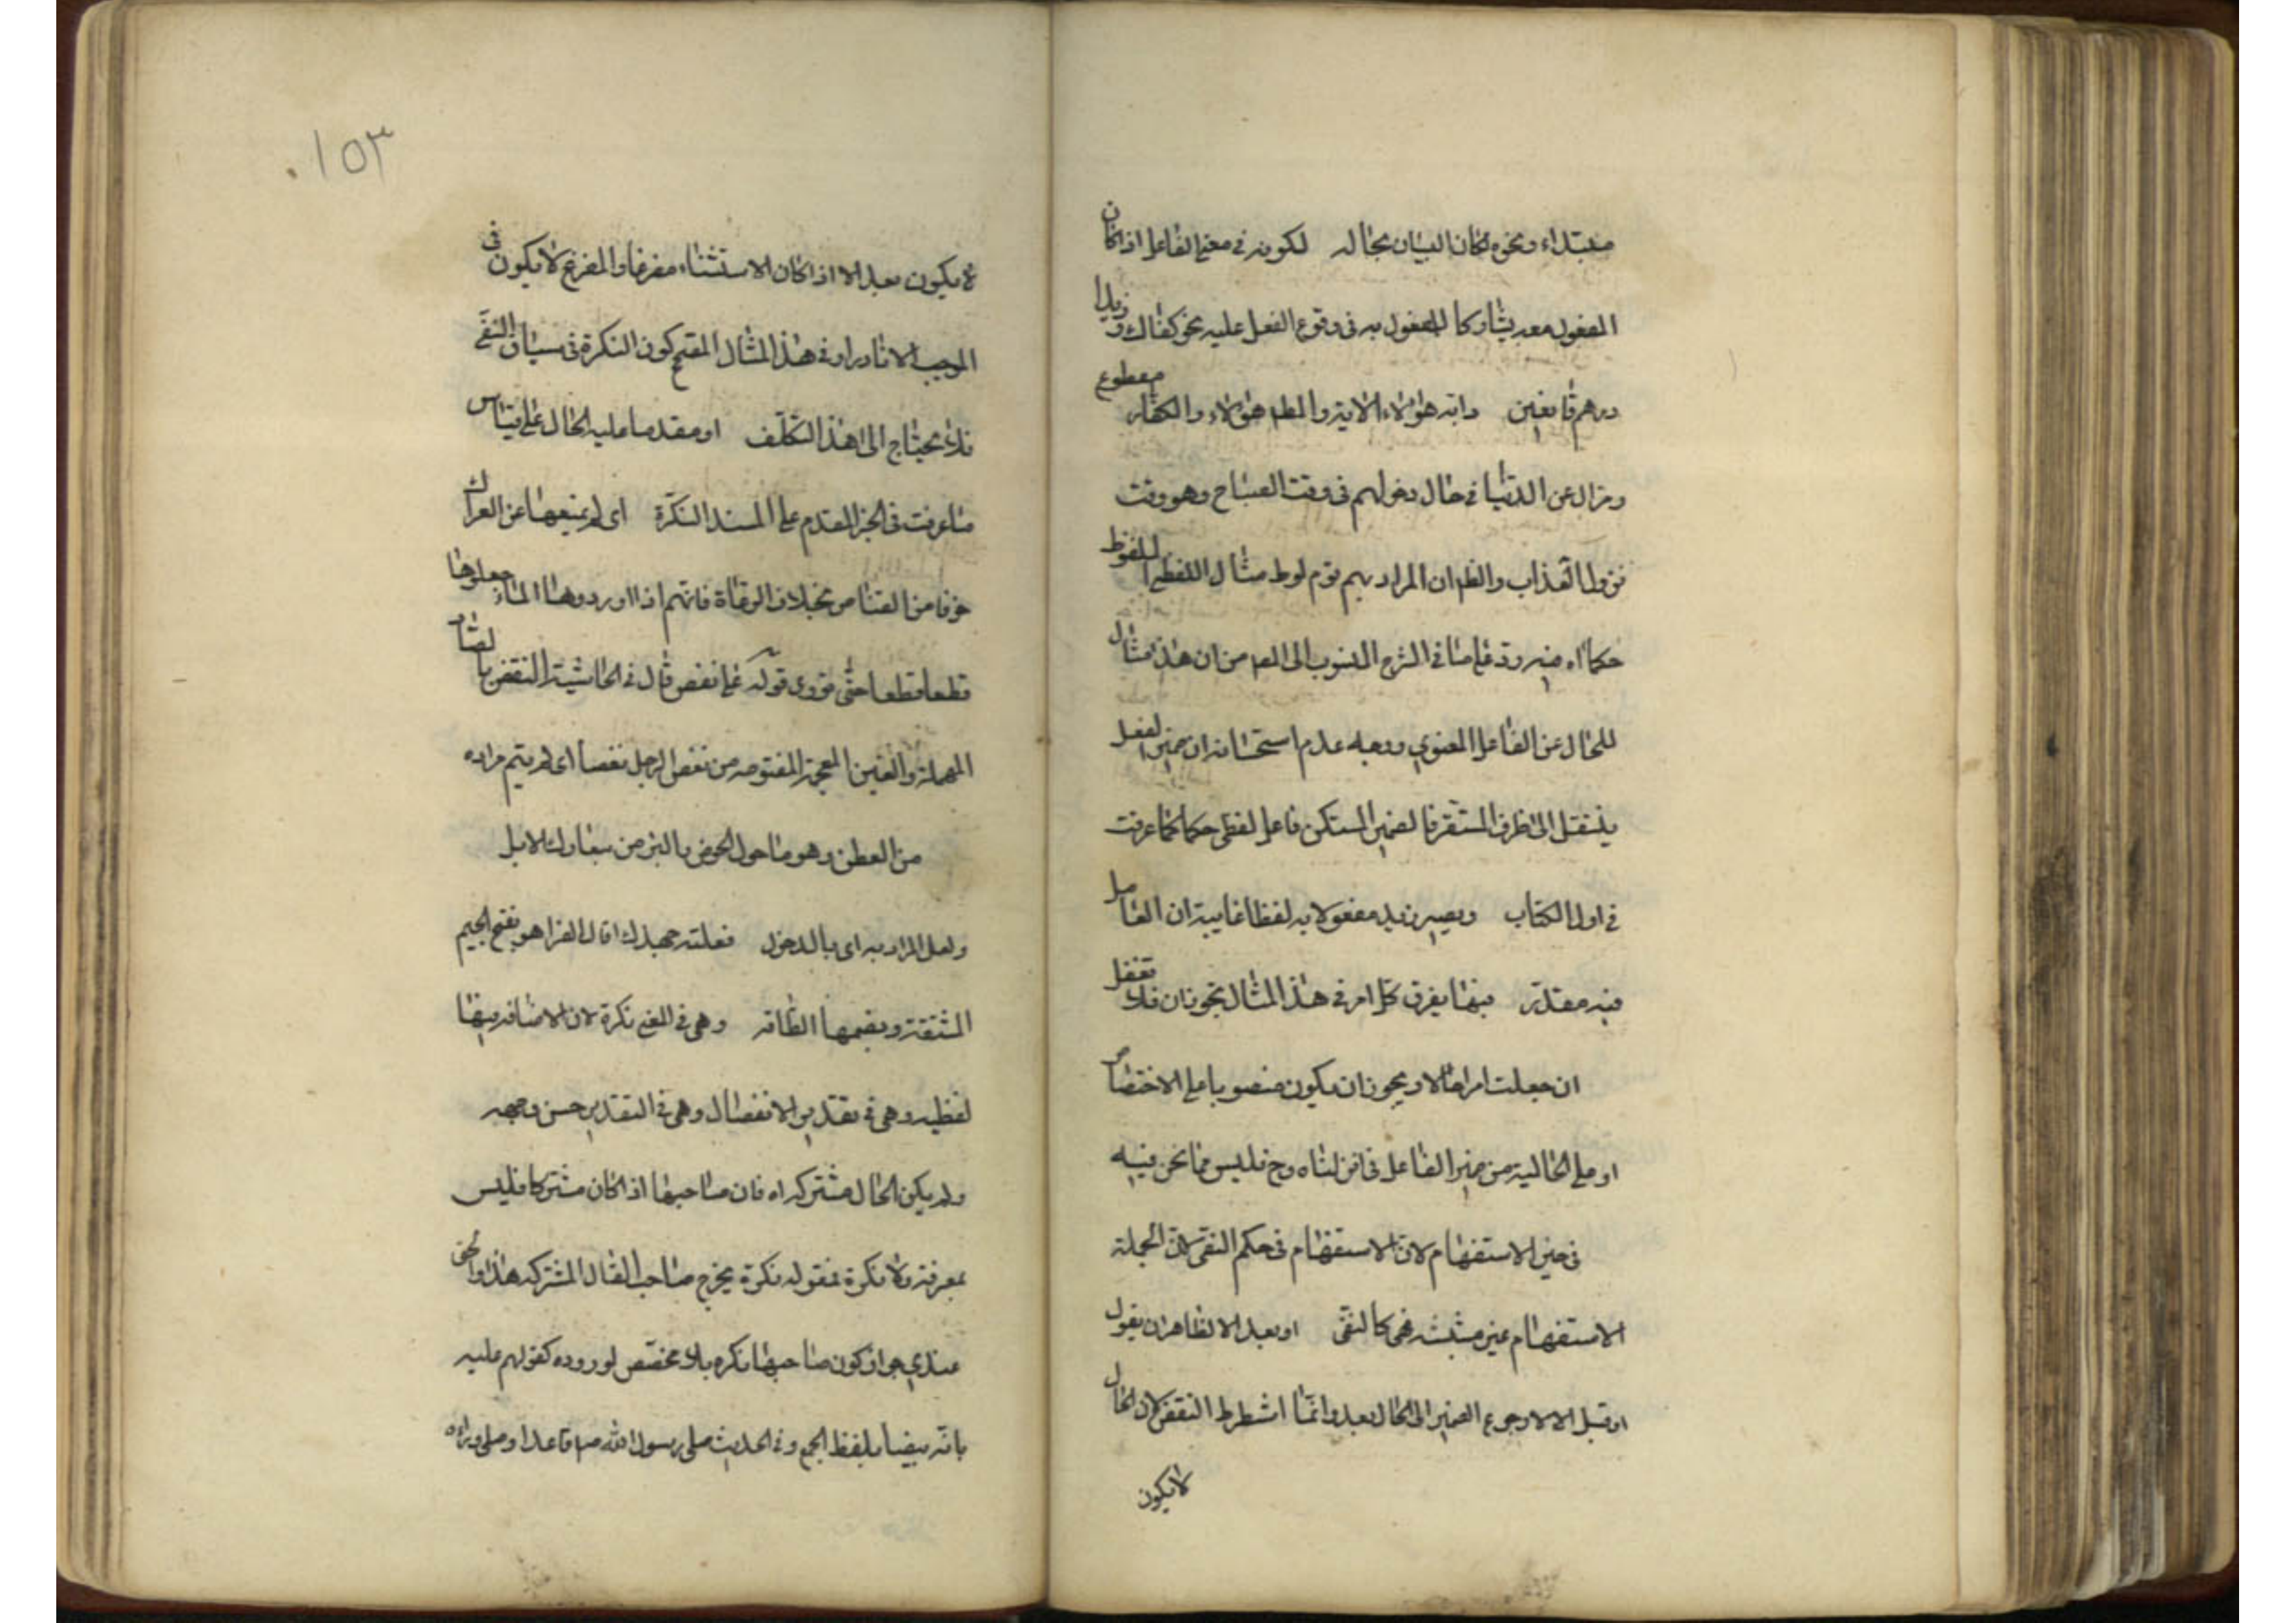 مبتداء ونحوه لكان البيان بحاله لكونه فى معنى الفاعل اذا كان
المفعول معه يشارك المفعول به فى وقوع الفعل عليه نحو كفاك وزيدا
درهم قابعين دابر هؤلاء الاية والمط هؤلاء والكفار مقطوع
ومزال عن الدنيا فى حال دخولهم فى وقت الصباح وهو وقت
نزول العذاب والظ ان المراد بهم قوم لوط مثال اللفظى الملفوظ
حكما اه فيه رد على ما فى الشرح المنسوب الى المص من ان هذا مثال
للحال عن الفاعل المعنوي ووجه عدم استحسانه ان ضمير الفعل
ينتقل الى الظرف المستقر فالضمير المستكن فاعل لفظى حكما كما عرفت
فى اول الكتاب ويصير زيد مفعولا به لفظا غايته ان العامل
فيه مقدر فيها يفرق كل امر فى هذا المثال بحوثان فلا تغفل
ان جعلت امرا حالا ويجوز ان يكون منصوبا على الاختصاص
او على الحالية من ضمير الفاعل فى انزلناه وح فليس مما نحن فيه
فى حيز الاستفهام لان الاستفهام فى حكم النفى لان الجملة
الاستفهام غير مثبتة فهى كالنفى او بعد الا الظاهر ان يقول
او قبل الا لا رجوع الضمير الى الحال بعد وانما اشطرط النقض لان الحال
لا يكون
١٥٣
لا يكون بعد الا اذا كان الاستثناء مفرغا والمفرغ لا يكون فى
الموجب الا نادرا وفى هذا المثال المقتح كون النكرة فى سياق النفى
فلا يحتاج الى هذا التكلف او مقدما عليه الحال على قياس
ما عرفت فى الخبر المقدم على المسند النكرة اى لم يمنعها عن العراك
خوفا من القناص بخلاف الرعاة فانهم اذا اوردوها الماء جعلوها
قطعا قطعا حتى تروى قوله على نغص قال فى الحاشية النغص بالصاد
المهملة والغين المعجمة المفتوحة من نغص الرجل نغصا اى لم يتم مراده
من العطن وهو ما حول الحوض بالبئر من مبارك الابل
ولعل المراد به اى بالدخول فعلته جهدك قال الفرا هو بفتح الجيم
المشقة وبضمها الطاقة وهى فى المعنى نكرة لان الاضافة فيها
لفظية وهى فى تقدير الانفصال وهى فى التقدير حسن وجهه
ولم يكن الحال مشتركة اه فان صاحبها اذا كان مشتركا فليس
بمعرفة ولا نكرة فبقوله نكرة يخرج صاحب الحال المشتركة هذا والحق
عندي جواز كون صاحبها نكره بلا مخصص لوروده كقولهم عليه
مائة بيضا بلفظ الجمع وفى الحديث صلى رسول الله ص قاعدا وصلى وراءه